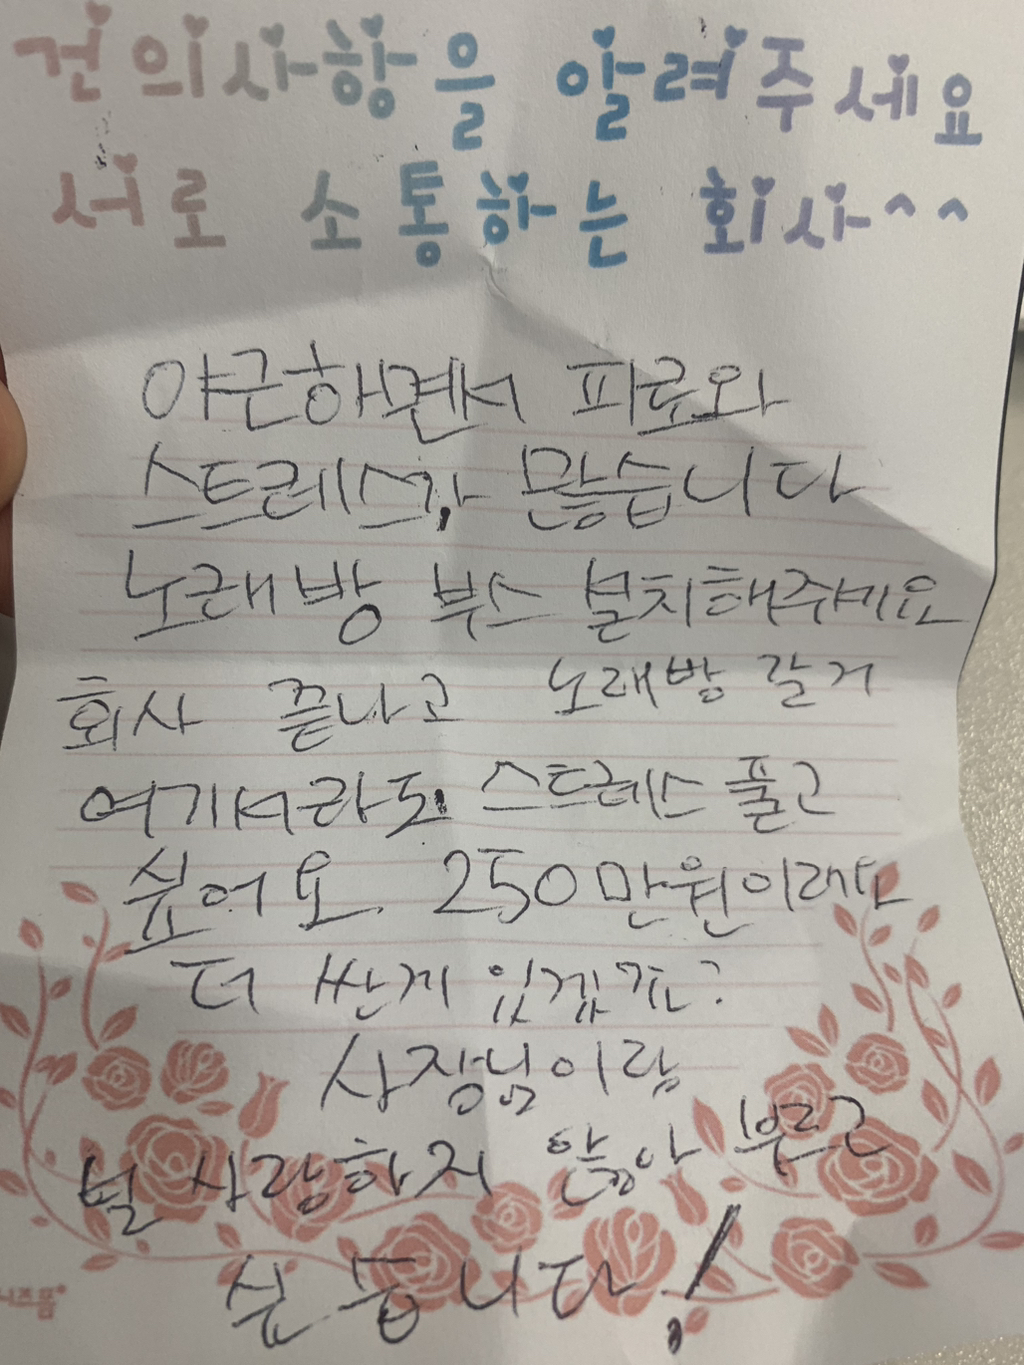 건의사항을 알려주세요
서로 소통하는 회사^^
야근하면서 피로와
스트레스가 많습니다
노래방 부스 설치해주세요
회사 끝나고 노래방 갈거
여기서라도 스트레스 풀고
싶어요. 250만원이래요
더 싼게 있겠죠?
사장님이랑
널 사랑하지 않아 부르고
싶습니다!
니즈폼